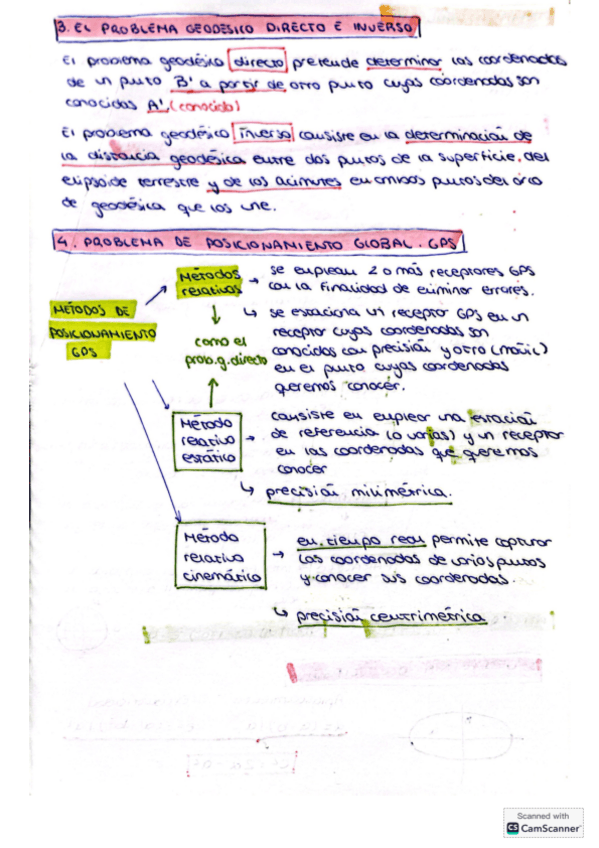 3. EL PROBLEMA GEODÉSICO DIRECTO E INVERSO
El problema geodésico directo pretende determinar las coordenadas
de un punto B' a partir de otro punto cuyas coordenadas son
conocidas A'. (conocido)
El problema geodésico inverso consiste en la determinación de
la distancia geodésica entre dos puntos de la superficie del
elipsoide terrestre y de los acimutes en ambos puntos del arco
de geodésica que los une.
4. PROBLEMA DE POSICIONAMIENTO GLOBAL. GPS
MÉTODOS DE
POSICIONAMIENTO
GPS
Métodos
relativos
→ se emplean 2 o más receptores GPS
con la finalidad de eliminar errores.
↳ se estaciona un receptor GPS en un
receptor cuyas coordenadas son
conocidas con precisión y otro (móvil)
en el punto cuyas coordenadas
queremos conocer.
como el
prob.g.directo
Método
relativo
estático
→ consiste en emplear una estación
de referencia (o varias) y un receptor
en las coordenadas que queremos
conocer
↳ precisión milimétrica.
Método
relativo
cinemático
→ en tiempo real permite capturar
las coordenadas de varios puntos
y conocer sus coordenadas.
↳ precisión centrimétrica
Scanned with
CS CamScanner